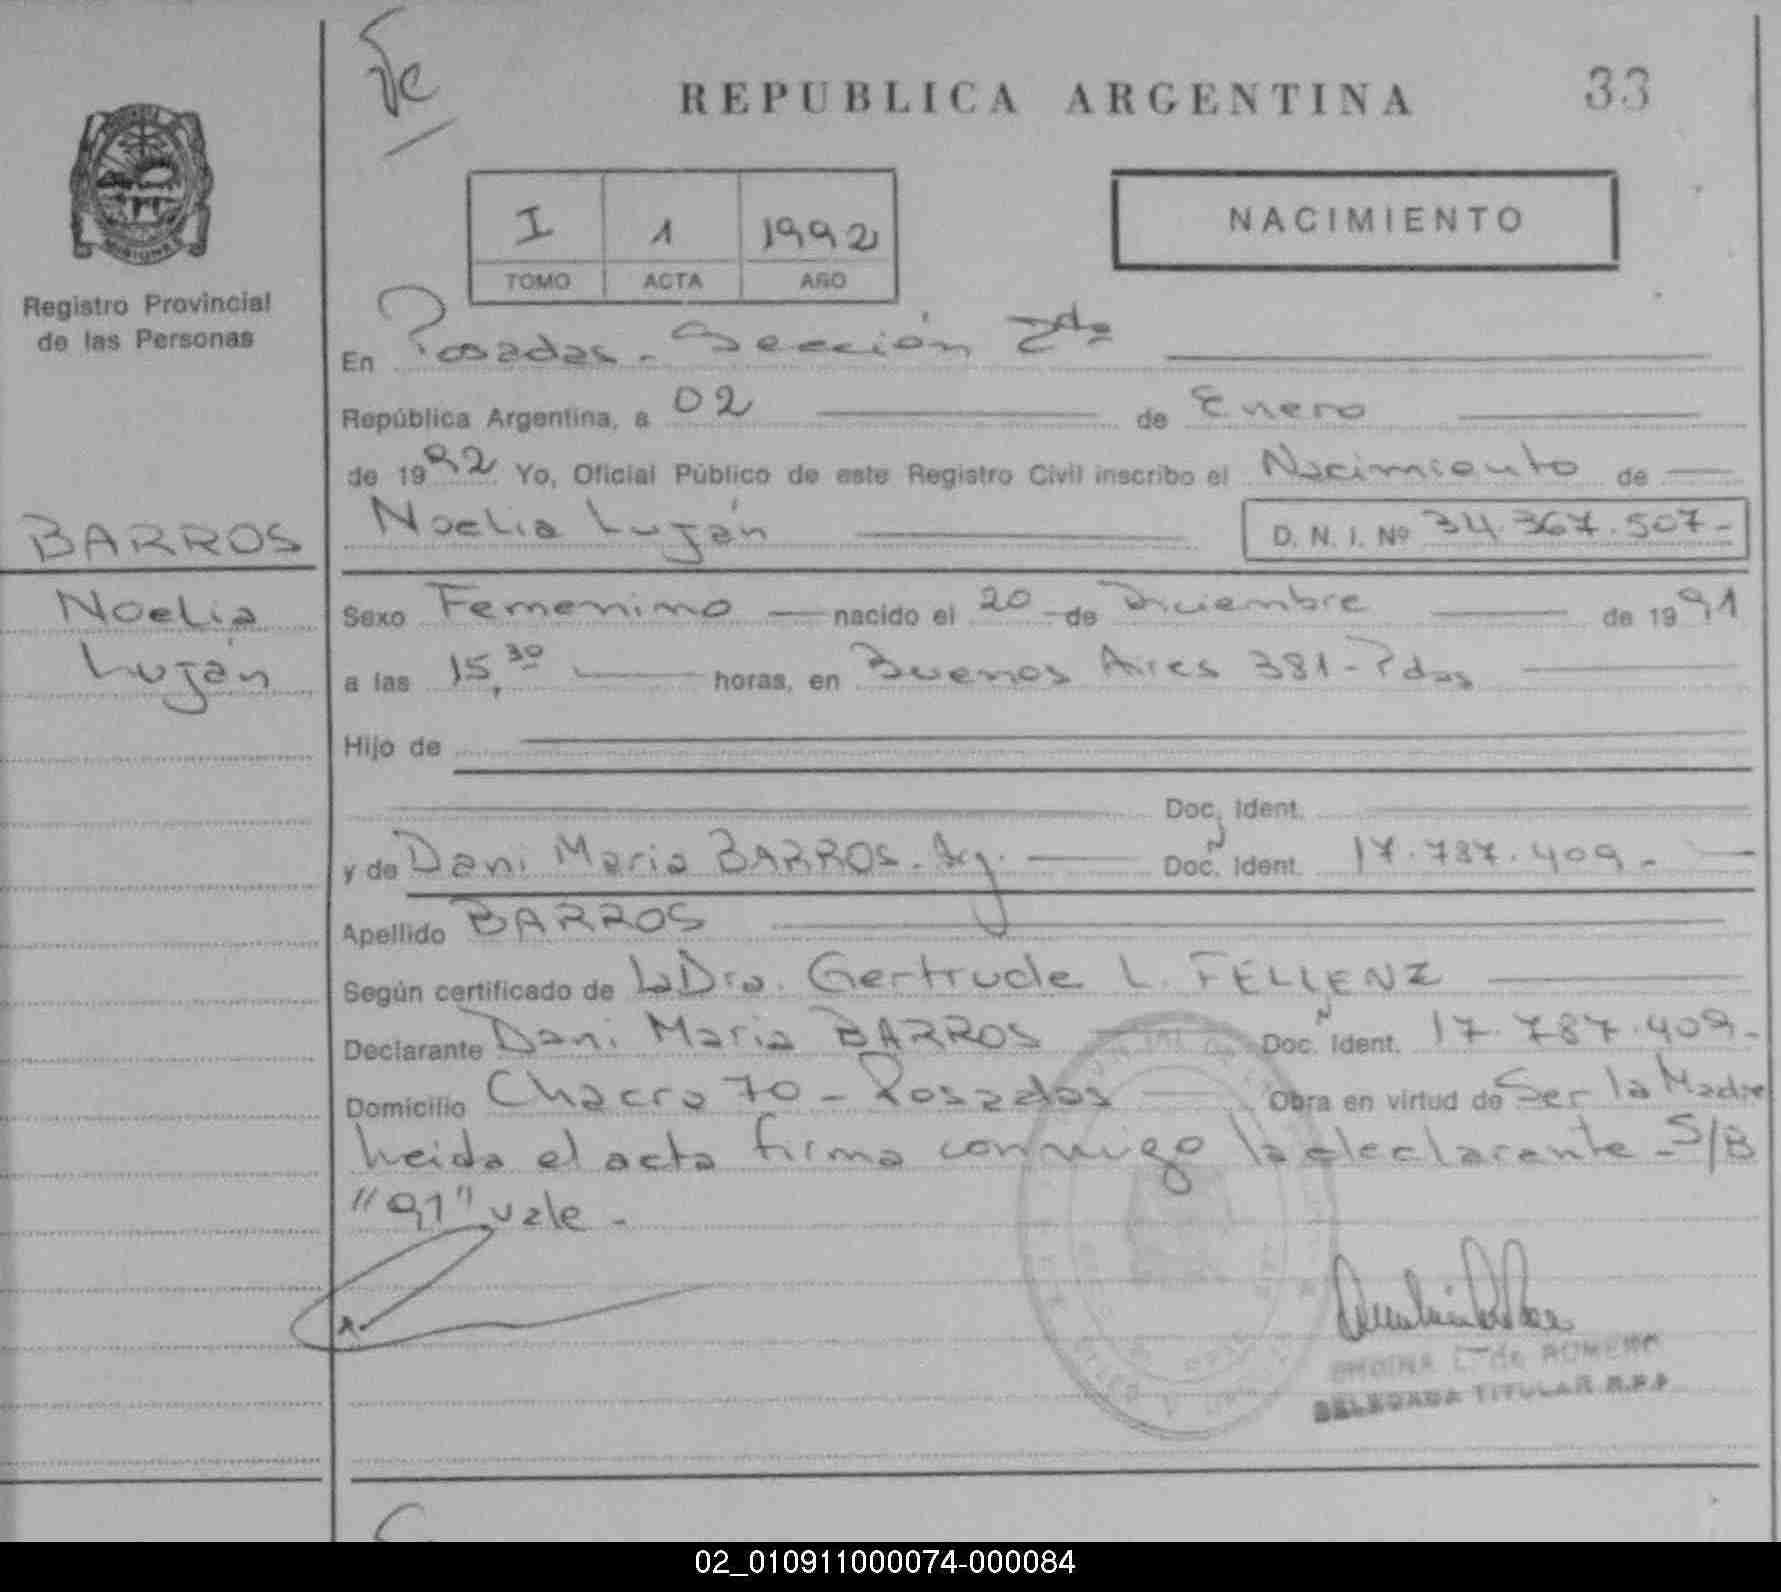 REPUBLICA ARGENTINA 33
I 1 1992
TOMO ACTA AÑO
NACIMIENTO
Registro Provincial
de las Personas
En Posadas - Sección 2da
República Argentina, a 02 de Enero
de 1992 Yo, Oficial Público de este Registro Civil inscribo el Nacimiento de
BARROS
Noelia Luján D. N. I. Nº 34.367.507-
Noelia
Luján
Sexo Femenino nacido el 20 de Diciembre de 1991
a las 15,30 horas, en Buenos Aires 381 - Pdas
Hijo de
Doc. Ident.
y de Dani Maria BARROS. Arg. Doc. N Ident. 17.787.409.-
Apellido BARROS
Según certificado de La Dra. Gertrude L. FELLENZ
Declarante Dani Maria BARROS Doc. N Ident. 17.787.409-
Domicilio Chacra 70 - Posadas Obra en virtud de Ser la Madre
Leida el acta firma conmigo la declarante - S/B
"91" vale -
L. de ROMERO
DELEGADA TITULAR R.P.P
02_010911000074-000084